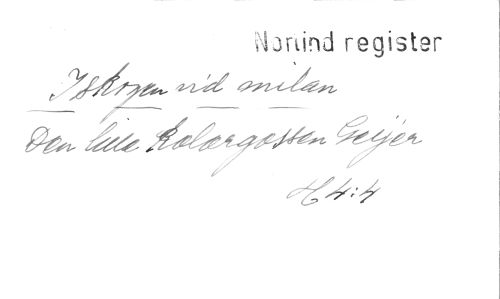 Norlind register
I skogen vid milan
Den lilla Kolargossen Geijer
H 4:4